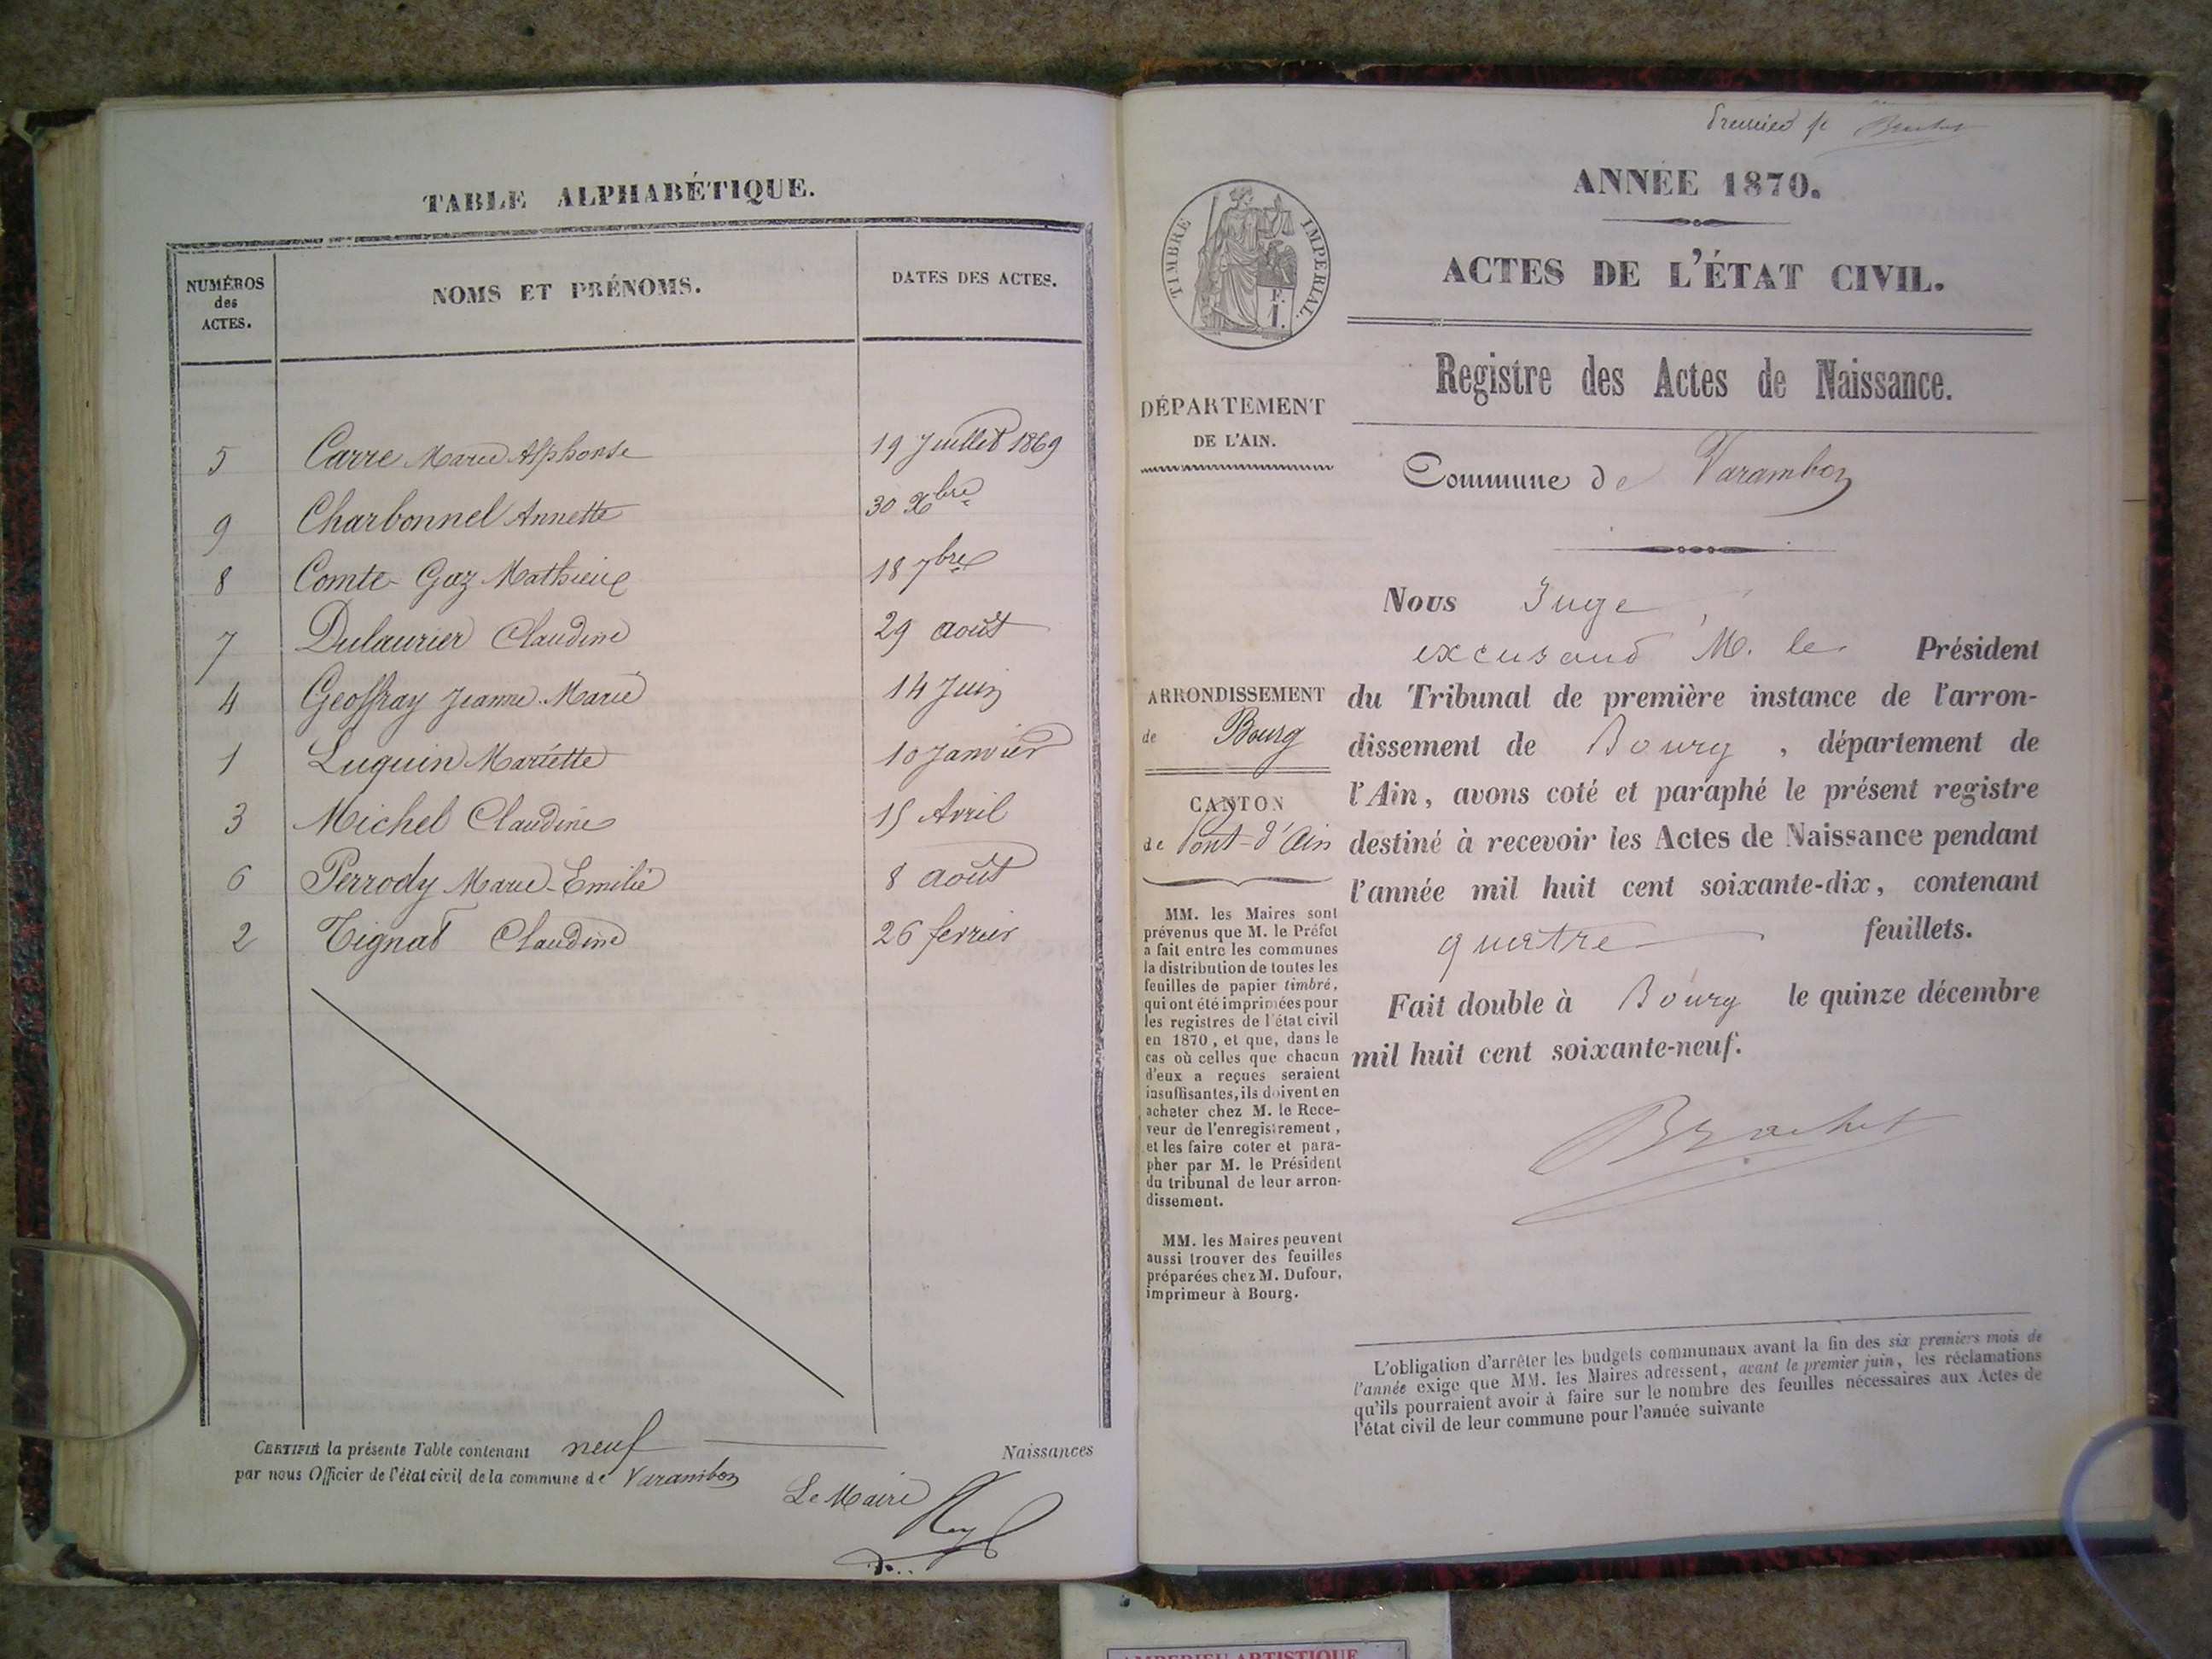 TABLE ALPHABÉTIQUE.
NUMÉROS
des
ACTES.
NOMS ET PRÉNOMS.
DATES DES ACTES.
5 Carre Marie Alphonse 19 Juillet 1869
9 Charbonnel Annette 30 Xbre
8 Comte-Gaz Mathieu 18 7bre
7 Dulaurier Claudine 29 août
4 Geoffray Jeanne-Marie 14 Juin
1 Luquin Mariette 10 Janvier
3 Michel Claudine 15 Avril
6 Perrody Marie-Emilie 8 août
2 Tignat Claudine 26 fevrier
CERTIFIÉ la présente Table contenant neuf Naissances
par nous Officier de l'état civil de la commune de Varambon
Le Maire
Premier f Brachet
ANNÉE 1870.
TIMBRE IMPÉRIAL.
ACTES DE L'ÉTAT CIVIL.
Registre des Actes de Naissance.
DÉPARTEMENT
DE L'AIN.
Commune de Varambon
ARRONDISSEMENT
de Bourg
CANTON
de Pont-d'Ain
MM. les Maires sont
prévenus que M. le Préfet
a fait entre les communes
la distribution de toutes les
feuilles de papier timbré,
qui ont été imprimées pour
les registres de l'état civil
en 1870, et que, dans le
cas où celles que chacun
d'eux a reçues seraient
insuffisantes, ils doivent en
acheter chez M. le Rece-
veur de l'enregistrement,
et les faire coter et para-
pher par M. le Président
du tribunal de leur arron-
dissement.
MM. les Maires peuvent
aussi trouver des feuilles
préparées chez M. Dufour,
imprimeur à Bourg.
Nous Juge,
excusant M. le Président
du Tribunal de première instance de l'arron-
dissement de Bourg, département de
l'Ain, avons coté et paraphé le présent registre
destiné à recevoir les Actes de Naissance pendant
l'année mil huit cent soixante-dix, contenant
quatre feuillets.
Fait double à Bourg le quinze décembre
mil huit cent soixante-neuf.
Brachet
L'obligation d'arrêter les budgets communaux avant la fin des six premiers mois de
l'année exige que MM. les Maires adressent, avant le premier juin, les réclamations
qu'ils pourraient avoir à faire sur le nombre des feuilles nécessaires aux Actes de
l'état civil de leur commune pour l'année suivante